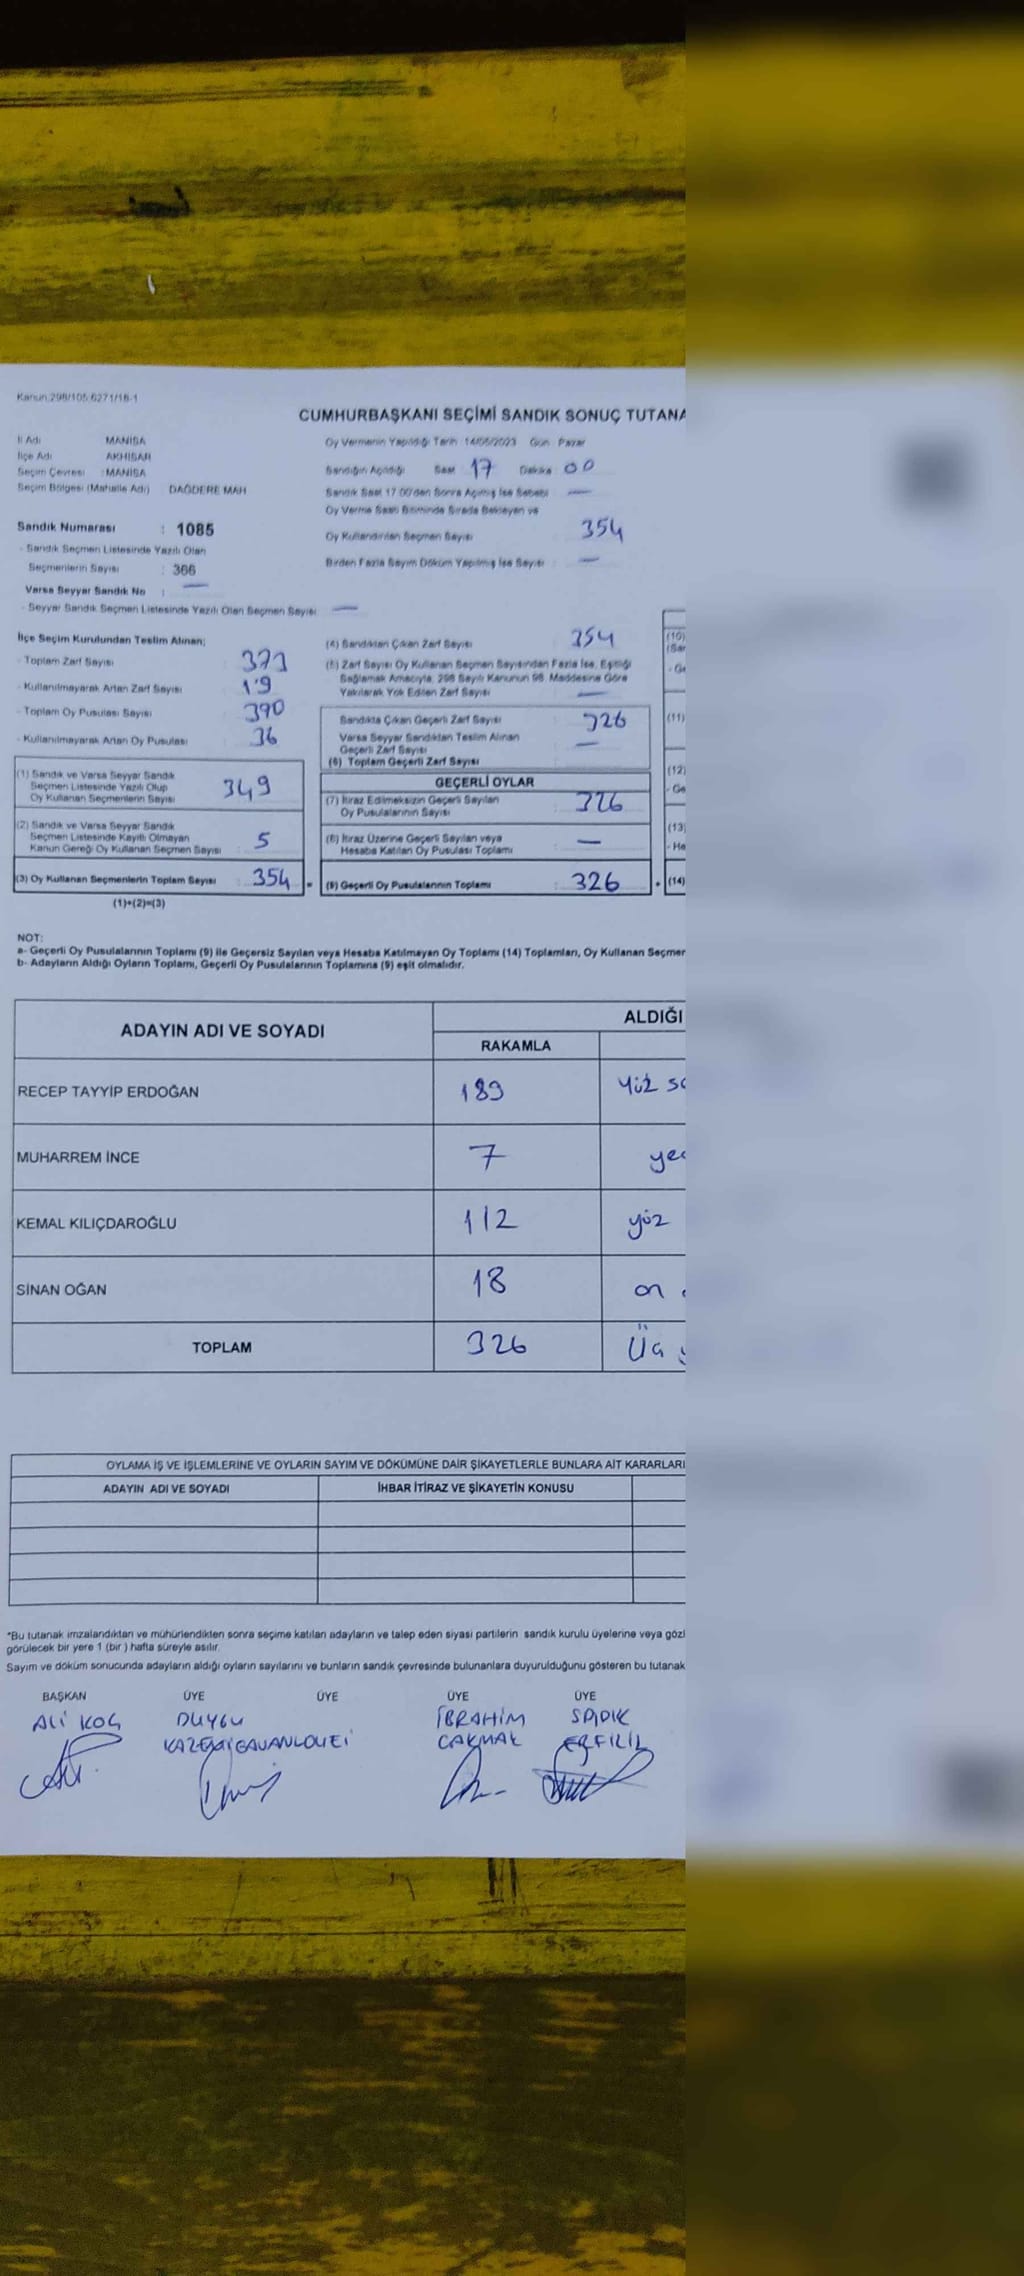 Kanun:298/105 6271/18-1
CUMHURBAŞKANI SEÇİMİ SANDIK SONUÇ TUTANA
İl Adı MANİSA
İlçe Adı AKHİSAR
Seçim Çevresi : MANİSA
Seçim Bölgesi (Mahalle Adı) : DAĞDERE MAH
Oy Vermenin Yapıldığı Tarih : 14/05/2023 Gün : Pazar
Sandığın Açıldığı Saat 17 Dakika : 00
Sandık Saat 17:00'den Sonra Açılmış İse Sebebi —
Oy Verme Saati Bitiminde Sırada Bekleyen ve
Oy Kullandırılan Seçmen Sayısı 354
Birden Fazla Sayım Döküm Yapılmış İse Sayısı : —
Sandık Numarası : 1085
- Sandık Seçmen Listesinde Yazılı Olan
Seçmenlerin Sayısı : 366
Varsa Seyyar Sandık No : —
- Seyyar Sandık Seçmen Listesinde Yazılı Olan Seçmen Sayısı : —
İlçe Seçim Kurulundan Teslim Alınan;
- Toplam Zarf Sayısı 373
- Kullanılmayarak Artan Zarf Sayısı 19
- Toplam Oy Pusulası Sayısı 390
- Kullanılmayarak Artan Oy Pusulası 36
(1) Sandık ve Varsa Seyyar Sandık
Seçmen Listesinde Yazılı Olup
Oy Kullanan Seçmenlerin Sayısı 349
(2) Sandık ve Varsa Seyyar Sandık
Seçmen Listesinde Kayıtlı Olmayan
Kanun Gereği Oy Kullanan Seçmen Sayısı : 5
(3) Oy Kullanan Seçmenlerin Toplam Sayısı : 354 =
(1)+(2)=(3)
(4) Sandıktan Çıkan Zarf Sayısı : 354
(5) Zarf Sayısı Oy Kullanan Seçmen Sayısından Fazla İse, Eşitliği
Sağlamak Amacıyla, 298 Sayılı Kanunun 98. Maddesine Göre
Yakılarak Yok Edilen Zarf Sayısı : —
Sandıkta Çıkan Geçerli Zarf Sayısı : 326
Varsa Seyyar Sandıktan Teslim Alınan
Geçerli Zarf Sayısı : —
(6) Toplam Geçerli Zarf Sayısı :
GEÇERLİ OYLAR
(7) İtiraz Edilmeksizin Geçerli Sayılan
Oy Pusulalarının Sayısı : 326
(8) İtiraz Üzerine Geçerli Sayılan veya
Hesaba Katılan Oy Pusulası Toplamı : —
(9) Geçerli Oy Pusulalarının Toplamı : 326 +
(10)
(Sar
- Ge
(11)
(12)
- Ge
(13)
- He
(14)
NOT:
a- Geçerli Oy Pusulalarının Toplamı (9) ile Geçersiz Sayılan veya Hesaba Katılmayan Oy Toplamı (14) Toplamları, Oy Kullanan Seçmer
b- Adayların Aldığı Oyların Toplamı, Geçerli Oy Pusulalarının Toplamına (9) eşit olmalıdır.
ADAYIN ADI VE SOYADI ALDIĞI
RAKAMLA
RECEP TAYYİP ERDOĞAN 189 yüz se
MUHARREM İNCE 7 yed
KEMAL KILIÇDAROĞLU 112 yüz
SİNAN OĞAN 18 on
TOPLAM 326 üç y
OYLAMA İŞ VE İŞLEMLERİNE VE OYLARIN SAYIM VE DÖKÜMÜNE DAİR ŞİKAYETLERLE BUNLARA AİT KARARLARI
ADAYIN ADI VE SOYADI İHBAR İTİRAZ VE ŞİKAYETİN KONUSU
*Bu tutanak imzalandıktan ve mühürlendikten sonra seçime katılan adayların ve talep eden siyasi partilerin sandık kurulu üyelerine veya gözl
görülecek bir yere 1 (bir ) hafta süreyle asılır.
Sayım ve döküm sonucunda adayların aldığı oyların sayılarını ve bunların sandık çevresinde bulunanlara duyurulduğunu gösteren bu tutanak
BAŞKAN ÜYE ÜYE ÜYE ÜYE
ALİ KOÇ DUYGU İBRAHİM SADIK
ÇAKMAK ERFİLİL